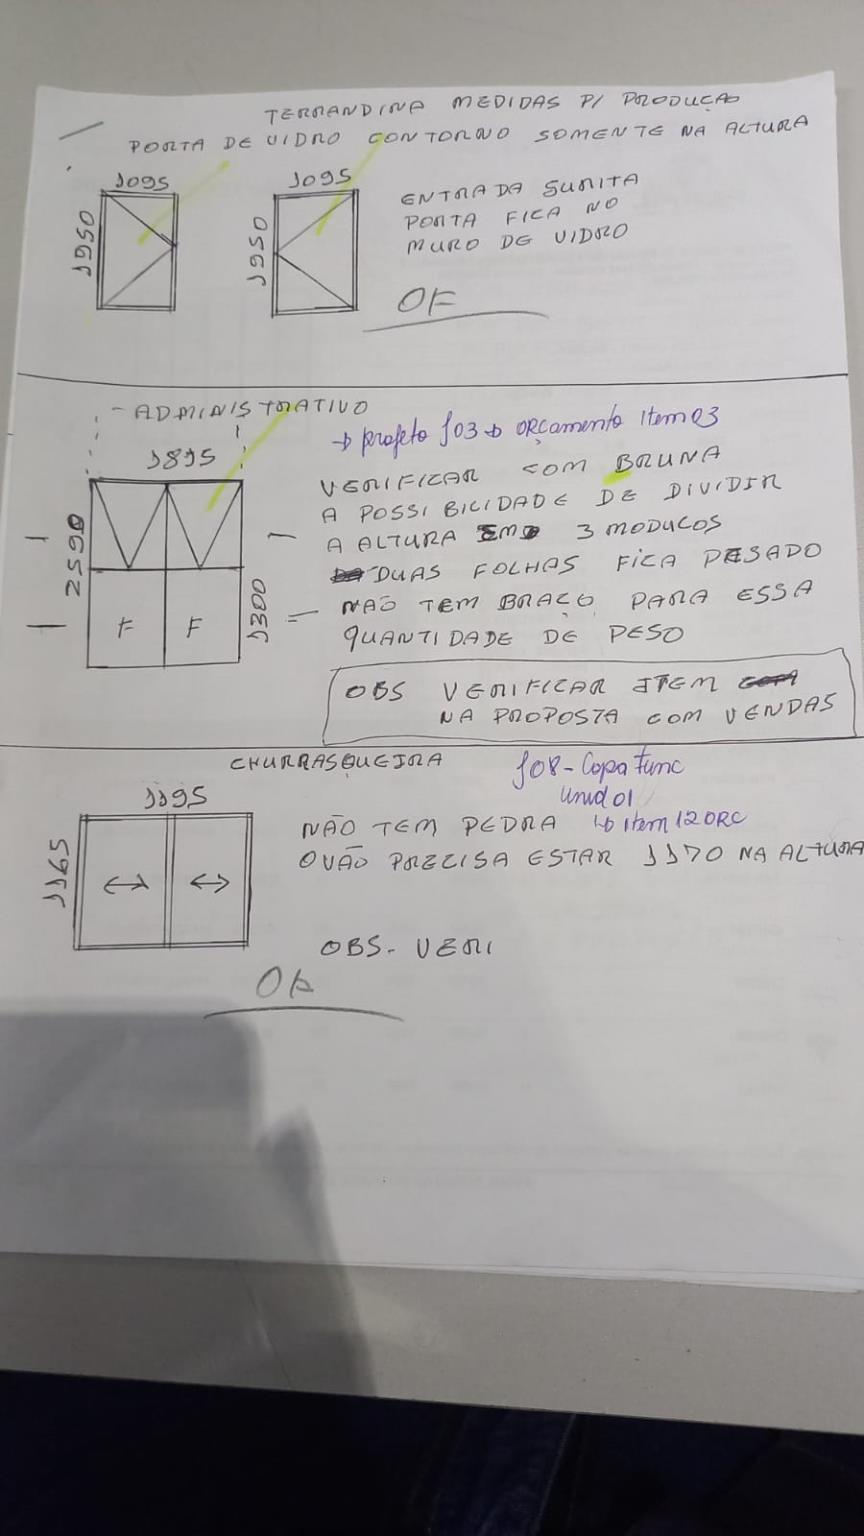 TERRANDINA MEDIDAS P/ PRODUÇÃO
PORTA DE VIDRO CONTORNO SOMENTE NA ALTURA
1095
1950
1095
1950
ENTRADA SUNITA
PORTA FICA NO
MURO DE VIDRO
OK
- ADMINISTRATIVO
→ projeto J03 → orçamento Item 03
1895
2590
1300
F F
VERIFICAR COM BRUNA
A POSSIBILIDADE DE DIVIDIR
A ALTURA EM 3 MODULOS
DUAS FOLHAS FICA PESADO
NÃO TEM BRAÇO PARA ESSA
QUANTIDADE DE PESO
OBS VERIFICAR ITEM
NA PROPOSTA COM VENDAS
CHURRASQUEIRA
J08 - Copa Func
Unid 01
↳ item 12 ORC
1195
1165
NÃO TEM PEDRA
O VÃO PRECISA ESTAR 1170 NA ALTURA
OBS - VERI
OK